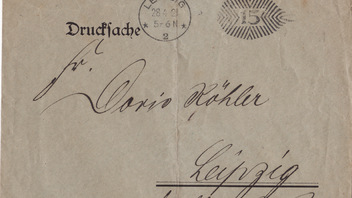 LEIPZIG
28.4.21
5-6 N
2
15
Drucksache
Fr.
Doris Köhler
Leipzig